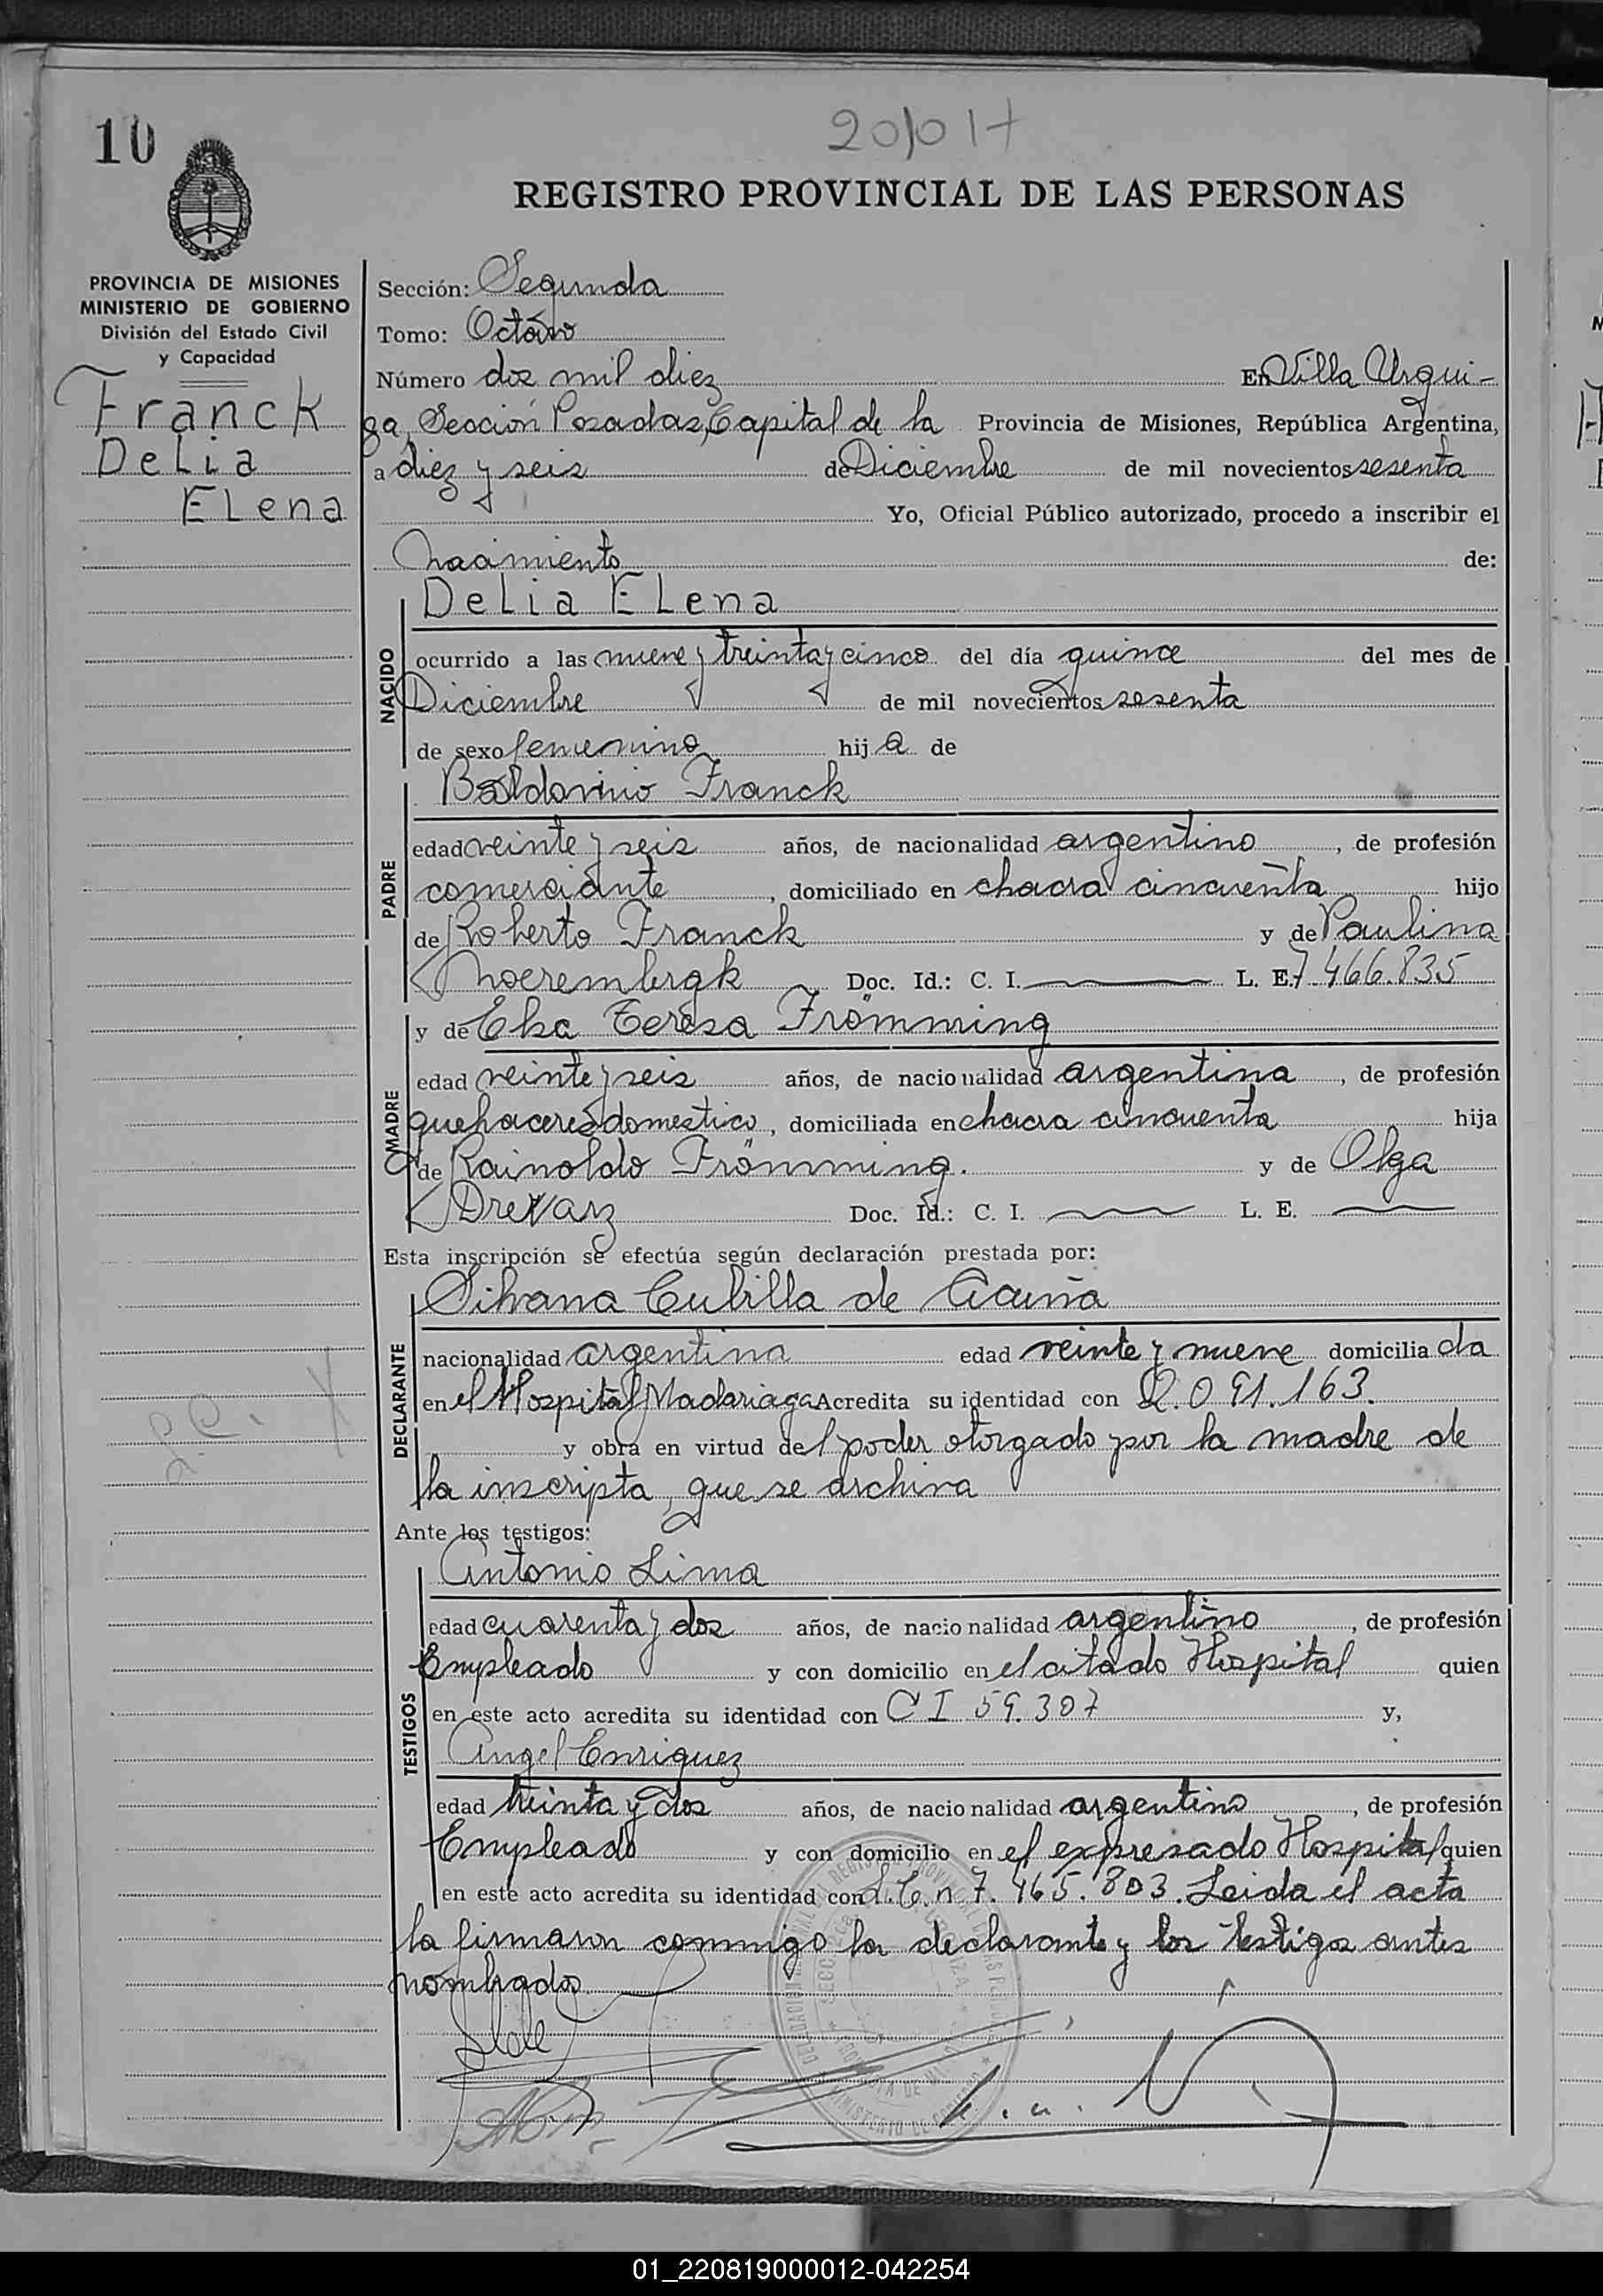 10
20/017
REGISTRO PROVINCIAL DE LAS PERSONAS
PROVINCIA DE MISIONES
MINISTERIO DE GOBIERNO
División del Estado Civil
y Capacidad
Franck
Delia
Elena
Sección: Segunda
Tomo: Octavo
Número dos mil diez En Villa Urqui-
za, Sección Posadas, Capital de la Provincia de Misiones, República Argentina,
a diez y seis de Diciembre de mil novecientos sesenta
Yo, Oficial Público autorizado, procedo a inscribir el
Nacimiento de:
NACIDO
Delia Elena
ocurrido a las nueve y treinta y cinco del día quince del mes de
Diciembre de mil novecientos sesenta
de sexo femenino hija de
PADRE
Baldovino Franck
edad veinte y seis años, de nacionalidad argentino, de profesión
comerciante, domiciliado en chacra cincuenta hijo
de Roberto Franck y de Paulina
Noerembrgk Doc. Id.: C. I. L. E. 7.466.835
MADRE
y de Elsa Teresa Frömming
edad veinte y seis años, de nacionalidad argentina, de profesión
quehaceres domestico, domiciliada en chacra cincuenta hija
de Rainoldo Frömming. y de Olga
Doc. Id.: C. I. L. E.
Esta inscripción se efectúa según declaración prestada por:
DECLARANTE
Silvana Cubilla de Acuña
nacionalidad argentina edad veinte y nueve domiciliada
en el Hospital Madariaga Acredita su identidad con 2.091.163.
y obra en virtud del poder otorgado por la madre de
la inscripta, que se archiva
Ante los testigos:
TESTIGOS
Antonio Lima
edad cuarenta y dos años, de nacionalidad argentino, de profesión
Empleado y con domicilio en el citado Hospital quien
en este acto acredita su identidad con C I 59.307 y,
Angel Enriquez
edad treinta y dos años, de nacionalidad argentino, de profesión
Empleado y con domicilio en el expresado Hospital quien
en este acto acredita su identidad con L.E. n 7.465.803. Leida el acta
la firmaron conmigo la declarante y los testigos antes
nombrados
01_220819000012-042254